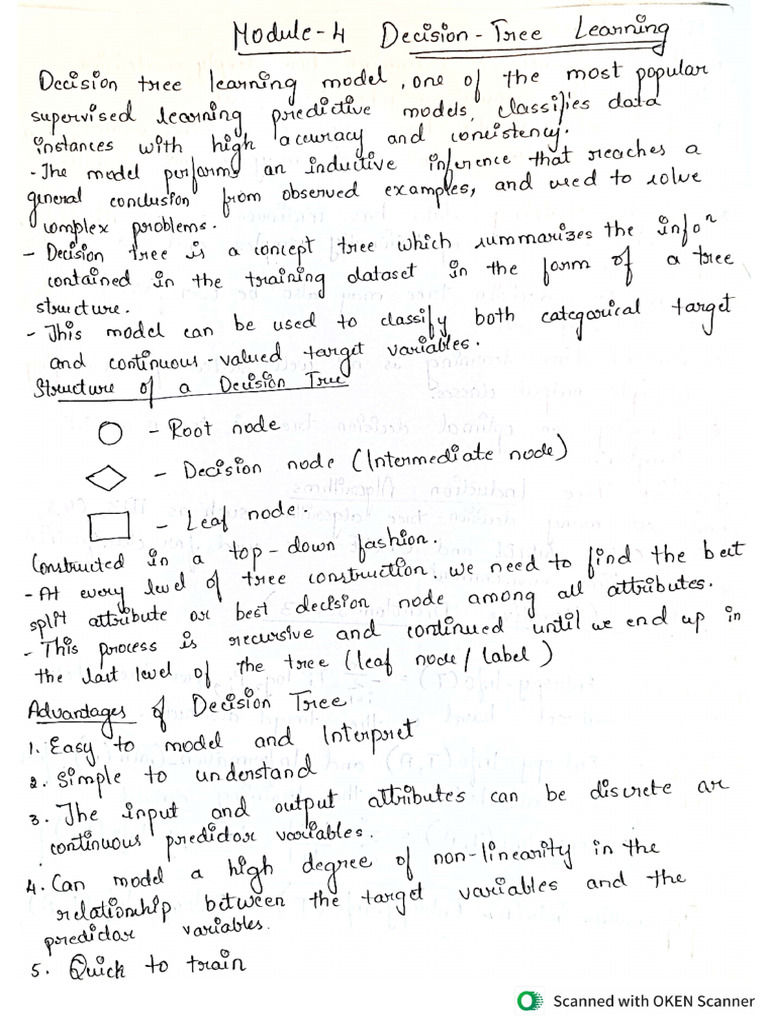 Module-4 Decision-Tree Learning
Decision tree learning model, one of the most popular
supervised learning predictive models, classifies data
instances with high accuracy and consistency.
- The model performs an inductive inference that reaches a
general conclusion from observed examples, and used to solve
complex problems.
- Decision tree is a concept tree which summarizes the infoⁿ
contained in the training dataset in the form of a tree
structure.
- This model can be used to classify both categorical target
and continuous-valued target variables.
Structure of a Decision Tree
- Root node
- Decision node (Intermediate node)
- Leaf node.
Constructed in a top-down fashion.
- At every level of tree construction, we need to find the best
split attribute or best decision node among all attributes.
- This process is recursive and continued until we end up in
the last level of the tree (leaf node / label)
Advantages of Decision Tree
1. Easy to model and Interpret
2. Simple to understand
3. The input and output attributes can be discrete or
continuous predictor variables.
4. Can model a high degree of non-linearity in the
relationship between the target variables and the
predictor variables.
5. Quick to train
Scanned with OKEN Scanner